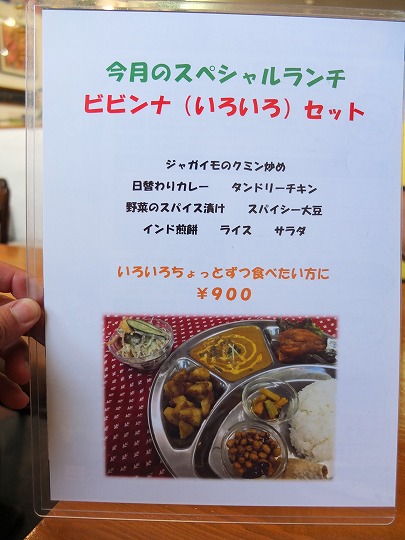 今月のスペシャルランチ
ビビンナ（いろいろ）セット
ジャガイモのクミン炒め
日替わりカレー　　タンドリーチキン
野菜のスパイス漬け　　スパイシー大豆
インド煎餅　　ライス　　サラダ
いろいろちょっとずつ食べたい方に
￥９００